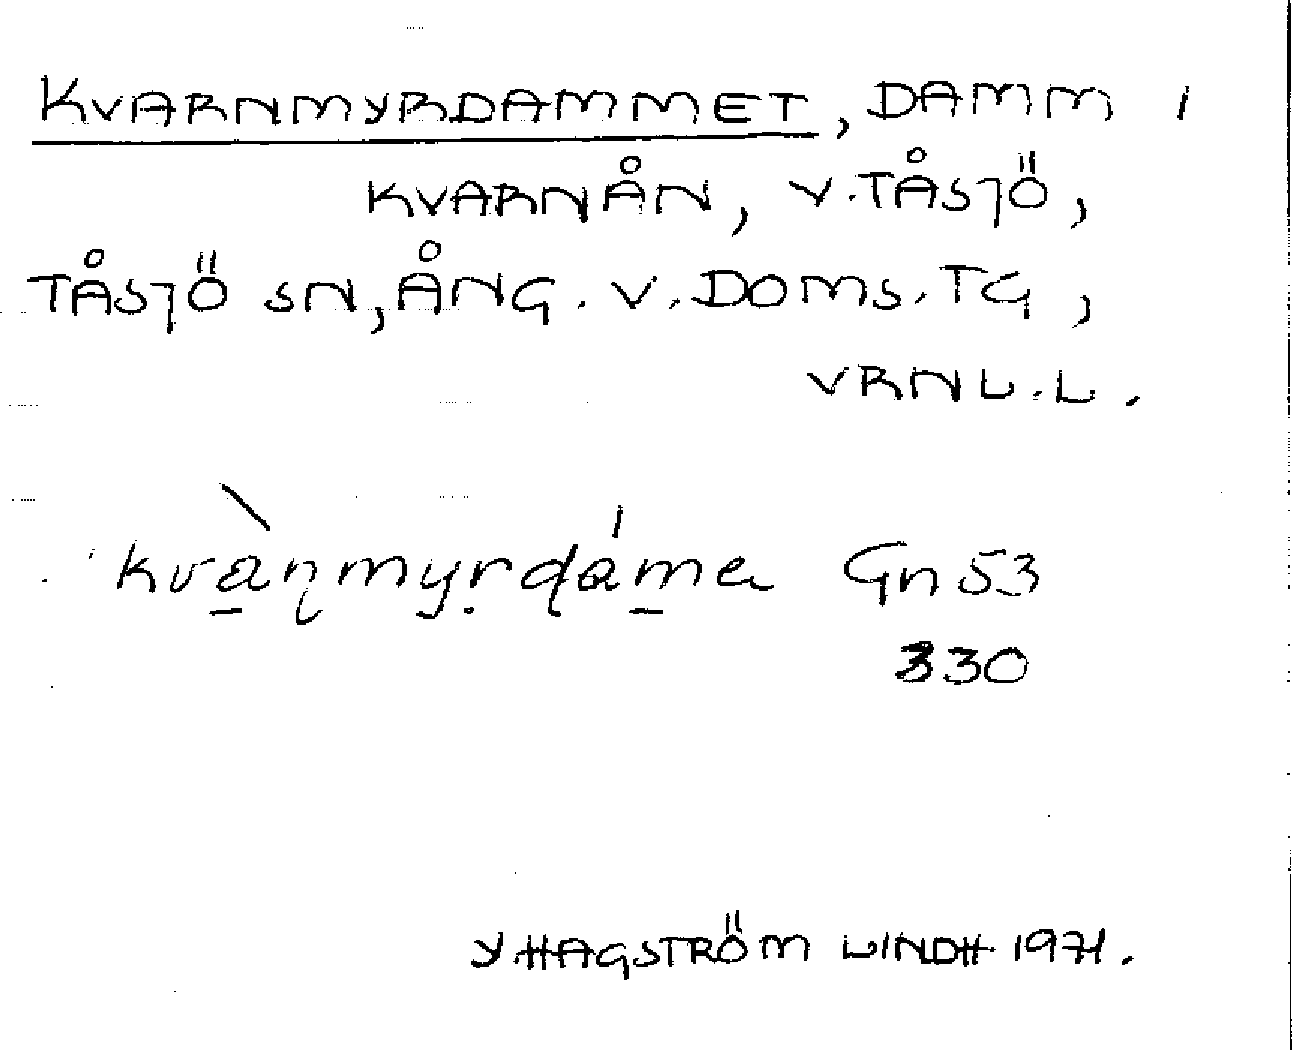 KVARNMYRDAMMET, DAMM I
KVARNÅN, V. TÅSJÖ,
TÅSJÖ SN, ÅNG. V. DOMS. TG,
VRNL.L.
kvàṉmyṛdáme Gn 53
330
Y HAGSTRÖM LINDH 1971.